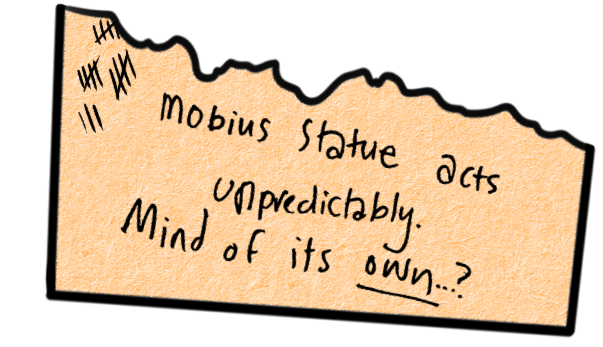 mobius statue acts
unpredictably.
Mind of its own...?